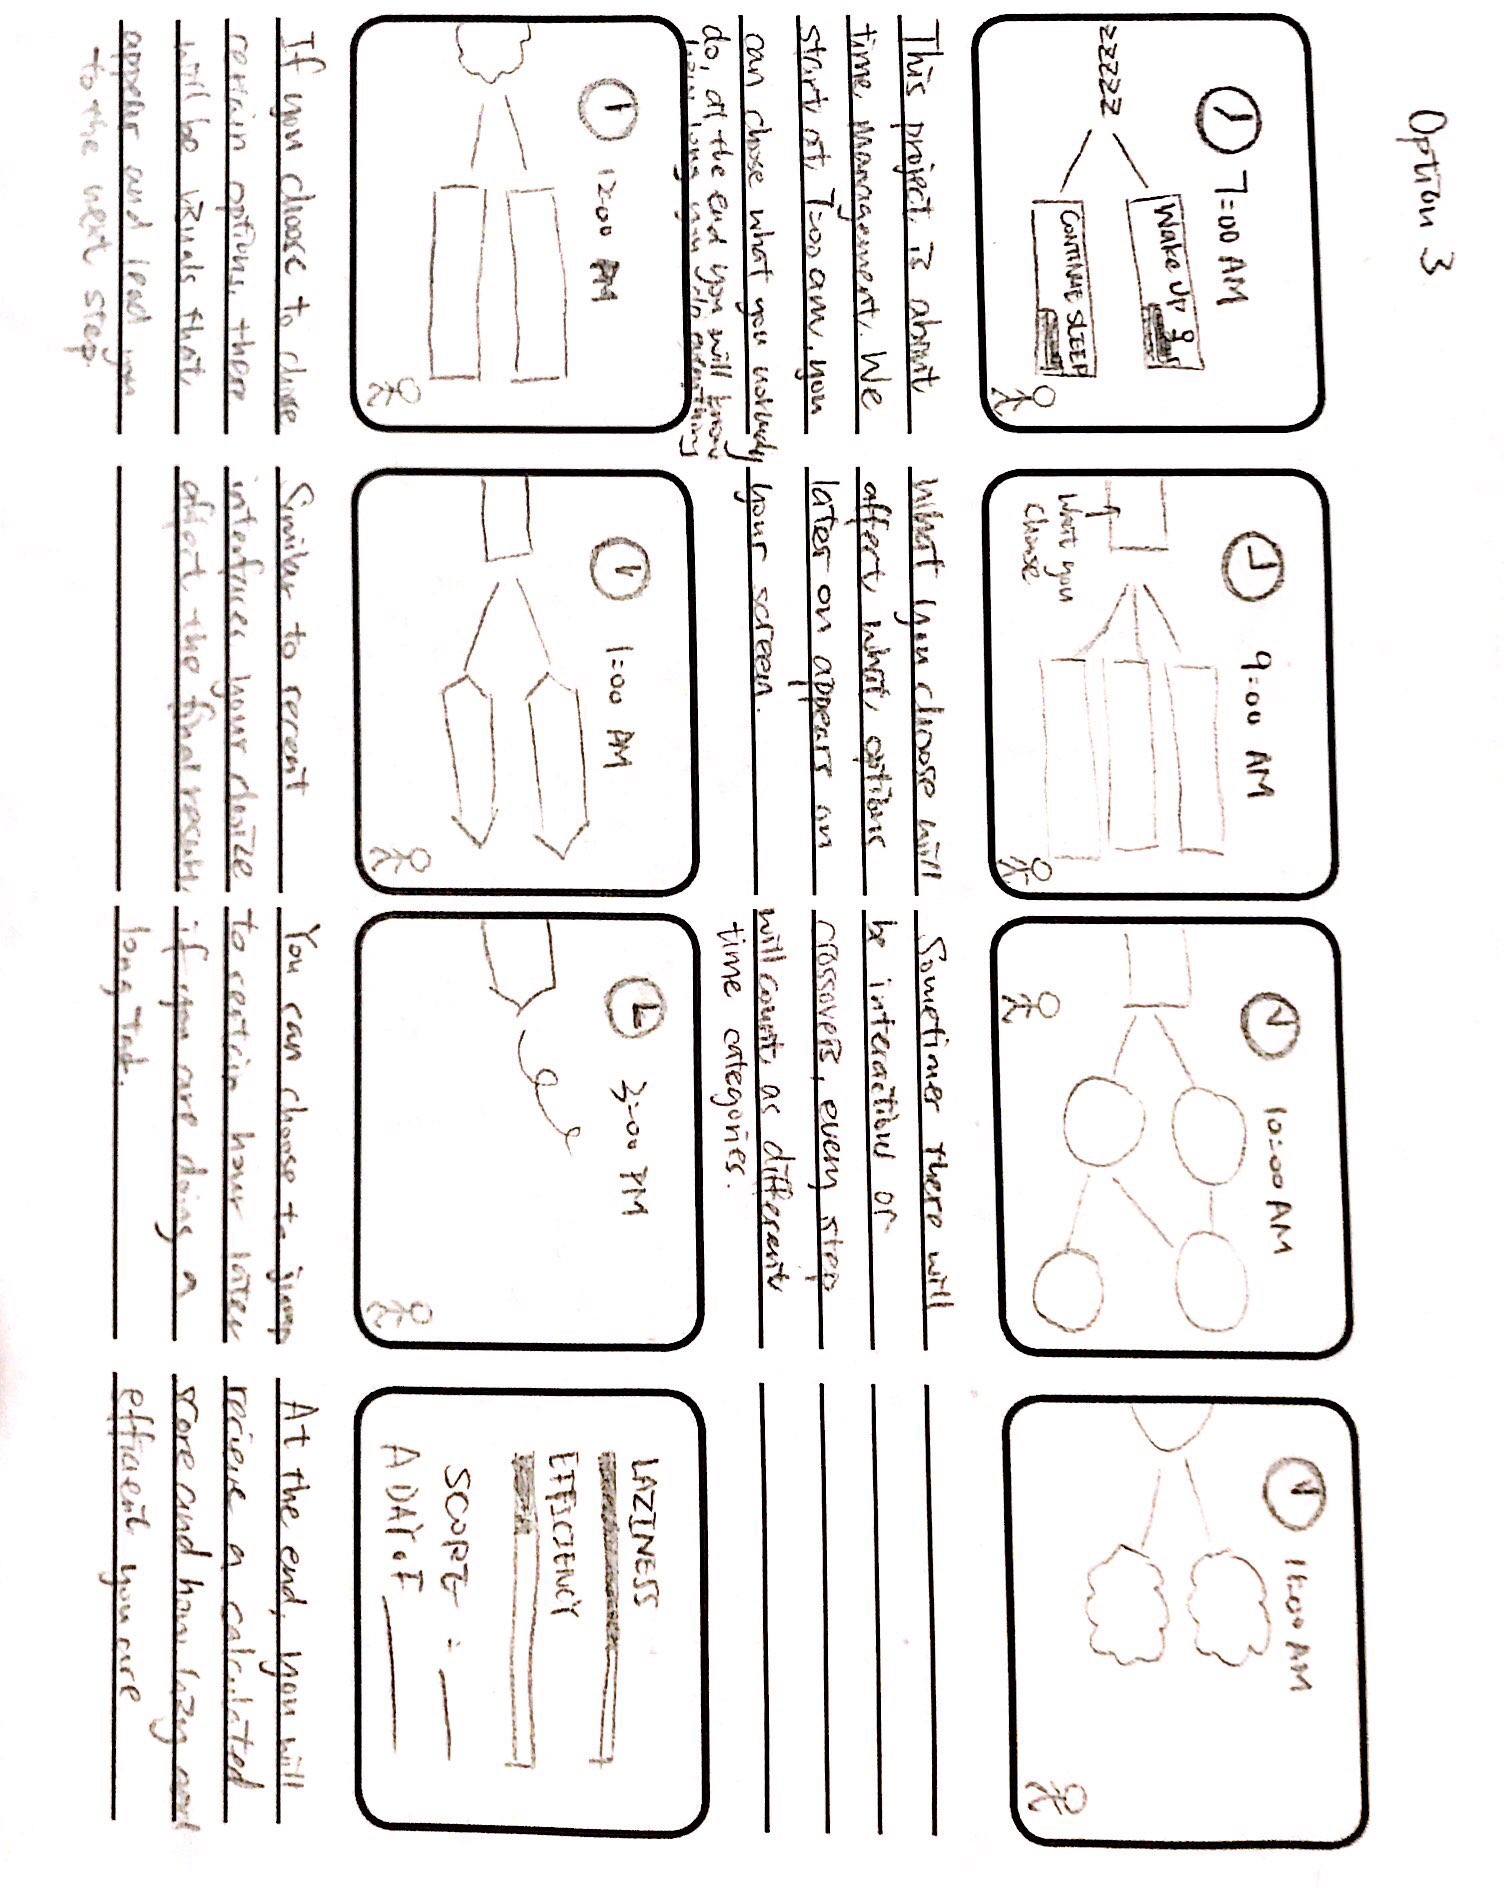 Option 3
7:00 AM
ZZZZZ
Wake Up
CONTINUE SLEEP
This project is about
time management. We
start at 7:00 am, you
can choose what you
do, at the end you will know
how long you
9:00 AM
What you
choose
What you choose will
affect what options
later on appears on
your screen.
10:00 AM
Sometimes there will
be interaction or
crossovers, every step
will count as different
time categories.
11:00 AM
12:00 PM
If you choose to
certain options, there
will be visuals that
appear and lead you
to the next step.
1:00 PM
Similar to recent
interfaces your
affect the final result.
3:00 PM
You can choose to jump
to certain hour later
if you are doing a
long
LAZINESS
EFFICIENCY
SCORE:
A DAY OF
At the end, you will
recieve a calculated
score and how lazy and
efficient you are